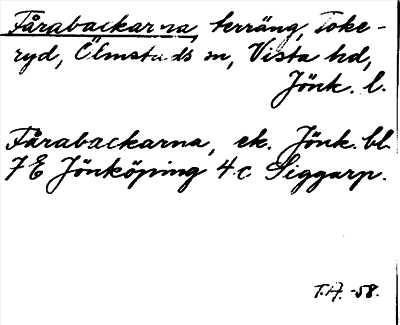 Fårabackarna, terräng, Toke-
ryd, Ölmstads sn, Vista hd,
Jönk. l.
Fårabackarna, ek. Jönk. bl.
7E Jönköping 4c Siggarp.
T.A. -58.